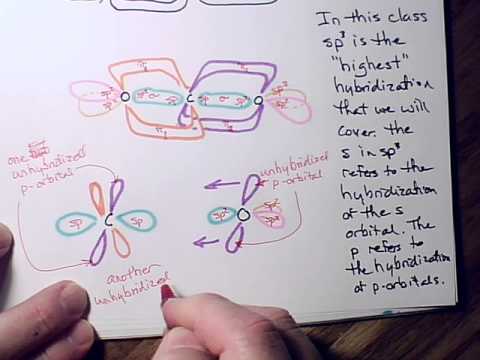 In this class
sp³ is the
"highest"
hybridization
that we will
cover. the
s in sp³
refers to the
hybridization
of the s
orbital. The
p refers to
the hybridization
of p-orbitals.
π₁ π₂
sp² O sp² σ sp C sp σ sp² O sp²
sp² sp²
π₁ π₂
one
unhybridized
p-orbital
sp C sp
another
unhybridized
unhybridized
p-orbital
sp² O sp²
sp²